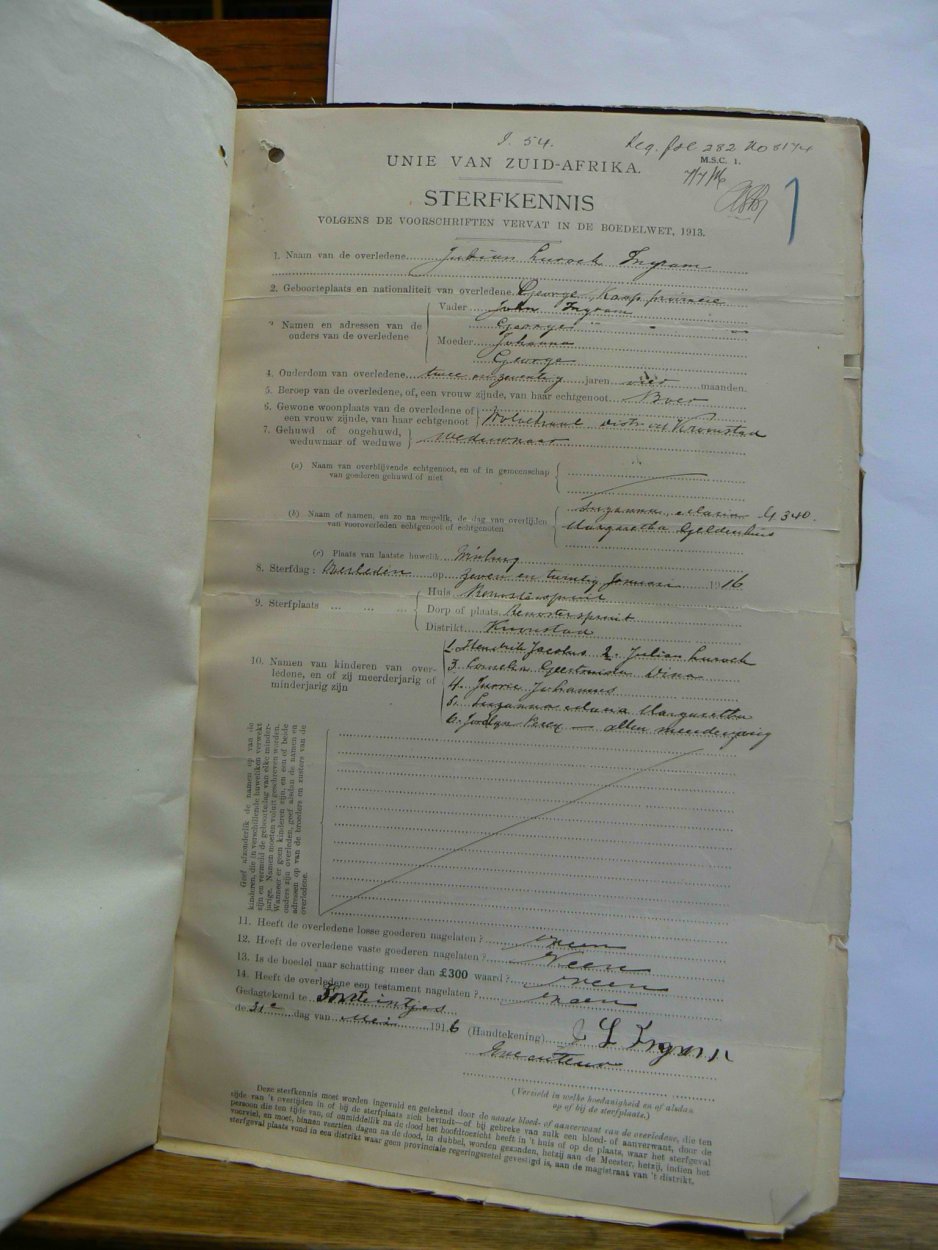 I. 54. Reg. fol 282 No
UNIE VAN ZUID-AFRIKA.
M.S.C. 1.
STERFKENNIS
VOLGENS DE VOORSCHRIFTEN VERVAT IN DE BOEDELWET, 1913.
1. Naam van de overledene Julian Luroch Ingram
2. Geboorteplaats en nationaliteit van overledene George, Kaap provincie
3 Namen en adressen van de ouders van de overledene
Vader John Ingram
George
Moeder Johanna
George
4. Ouderdom van overledene twee en zeventig jaren vier maanden.
5. Beroep van de overledene, of, een vrouw zijnde, van haar echtgenoot Boer
6. Gewone woonplaats van de overledene of
een vrouw zijnde, van haar echtgenoot distrikt Kroonstad
7. Gehuwd of ongehuwd,
weduwnaar of weduwe weduwnaar
(a) Naam van overblijvende echtgenoot, en of in gemeenschap
van goederen gehuwd of niet
(b) Naam of namen, en zo na mogelik, de dag van overlijden
van vooroverleden echtgenoot of echtgenoten
Suzanna Maria
Margaretha Geldenhuis
(c) Plaats van laatste huwelik Winburg
8. Sterfdag: Overleden op zeven en twintig Januari 1916
9. Sterfplaats ... ... ...
Huis Renosterspruit
Dorp of plaats Renosterspruit
Distrikt Kroonstad
10. Namen van kinderen van over-
ledene, en of zij meerderjarig of
minderjarig zijn
1. Hendrik Jacobus 2. Julian Luroch
3. Cornelia Geertruida Dina
4. Jurrie Johannes
5. Suzanna Maria Margaretha
6. Joslyn Percy — allen meerderjarig
Geef afzonderlik de namen op van de
kinderen, die in verschillende huweliken verwekt
zijn en vermeld de geboortedag van elke minder-
jarige. Namen moeten voluit geschreven worden.
Wanneer er geen kinderen zijn, en een of beide
ouders zijn overleden, geef alsdan de namen en
adressen op van de broeders en zusters van de
overledene.
11. Heeft de overledene losse goederen nagelaten? Neen
12. Heeft de overledene vaste goederen nagelaten? Neen
13. Is de boedel naar schatting meer dan £300 waard? Neen
14. Heeft de overledene een testament nagelaten? Neen
Gedagtekend te
de 31e dag van Mei 1916 (Handtekening) J L Ingram
Executeur
(Vermeld in welke hoedanigheid en of aldan
op of bij de sterfplaats.)
Deze sterfkennis moet worden ingevuld en getekend door de naaste bloed- of aanverwant van de overledene, die ten
tijde van 't overlijden in of bij de sterfplaats zich bevindt—of bij gebreke van zulk een bloed- of aanverwant, door de
persoon die ten tijde van, of onmiddelik na de dood het hoofdtoezicht heeft in 't huis of op de plaats, waar het sterfgeval
voorviel, en moet, binnen veertien dagen na de dood, in dubbel, worden gezonden, hetzij aan de Meester, hetzij, indien het
sterfgeval plaats vond in een distrikt waar geen provinciale regeringszetel gevestigd is, aan de magistraat van 't distrikt.